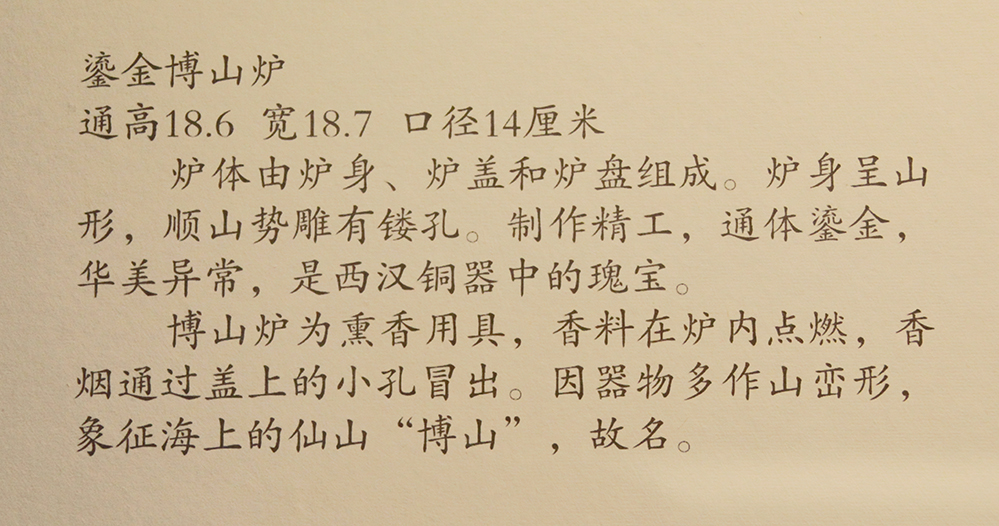 鎏金博山炉
通高18.6 宽18.7 口径14厘米
炉体由炉身、炉盖和炉盘组成。炉身呈山
形，顺山势雕有镂孔。制作精工，通体鎏金，
华美异常，是西汉铜器中的瑰宝。
博山炉为熏香用具，香料在炉内点燃，香
烟通过盖上的小孔冒出。因器物多作山峦形，
象征海上的仙山“博山”，故名。